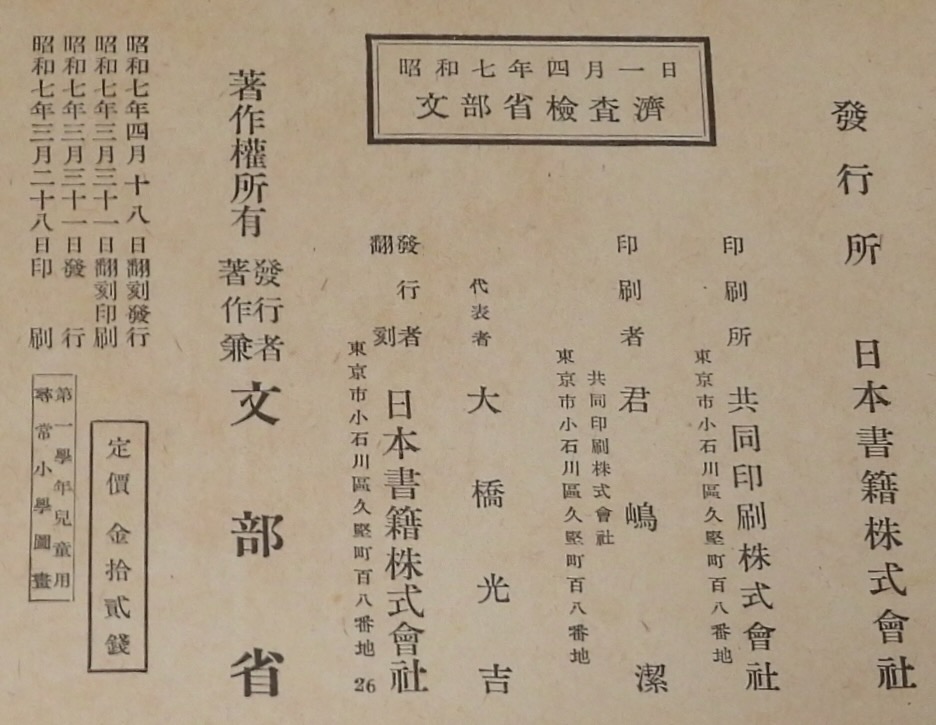 昭和七年三月二十八日印刷
昭和七年三月三十一日發行
昭和七年三月三十一日翻刻印刷
昭和七年四月十八日翻刻發行
尋常小學圖畫
第一學年兒童用
定價 金拾貳錢
著作權所有
著作兼
發行者
文部省
昭和七年四月一日
文部省檢査濟
翻刻
發行者
東京市小石川區久堅町百八番地
日本書籍株式會社
26
代表者 大橋光吉
東京市小石川區久堅町百八番地
共同印刷株式會社
印刷者 君嶋潔
東京市小石川區久堅町百八番地
印刷所 共同印刷株式會社
發行所 日本書籍株式會社